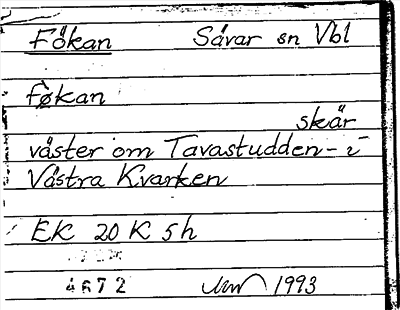 Fökan Sävar sn Vbl
føkan
skär
väster om Tavastudden - i
Västra Kvarken
EK 20 K 5h
4672 1993